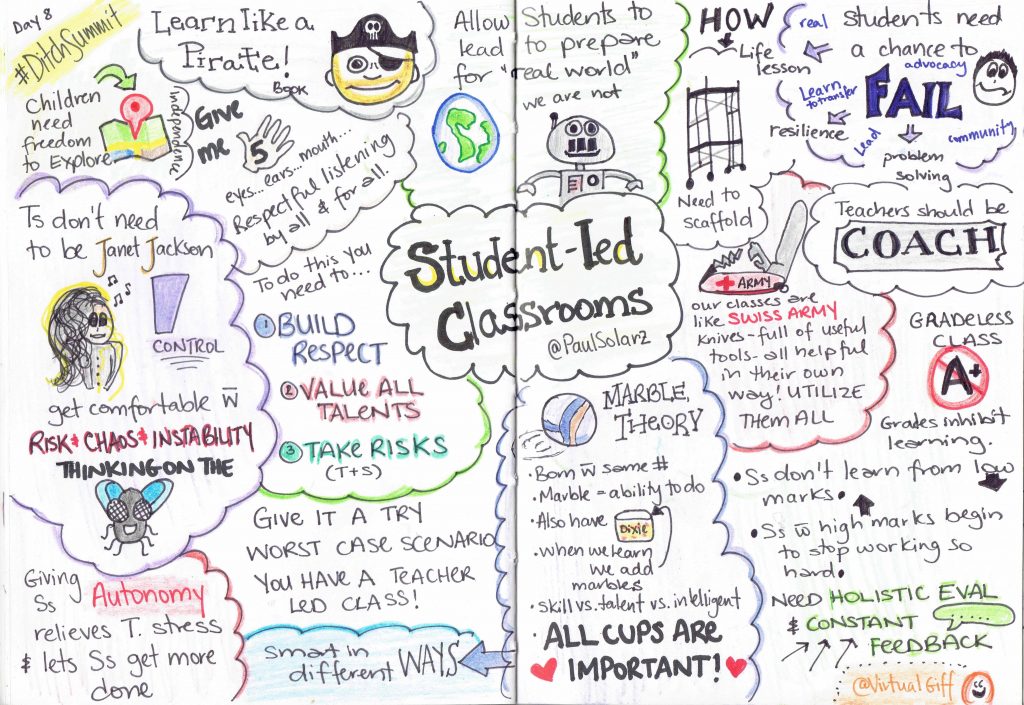 Day 8
#DitchSummit
Learn like a
Pirate!
Book
Children
need
freedom
to Explore
Independence
Give
me
5
eyes... ears... mouth...
Respectful listening
by all & for all.
Allow Students to
lead to prepare
for "real world"
we are not
HOW
Life
lesson
Need to
scaffold
real students need
a chance to
advocacy
FAIL
Learn
to transfer
resilience
Lead
community
problem
solving
Ts don't need
to be Janet Jackson
CONTROL
get comfortable w̅
RISK & CHAOS & INSTABILITY
THINKING ON THE
To do this you
need to...
1 BUILD
RESPECT
2 VALUE ALL
TALENTS
3 TAKE RISKS
(T+S)
Student-led
Classrooms
@PaulSolarz
Teachers should be
COACH
ARMY
our classes are
like SWISS ARMY
knives - full of useful
tools - all helpful
in their own
way! UTILIZE
THEM ALL
GRADELESS
CLASS
A+
Grades inhibit
learning.
• Ss don't learn from low
marks.
• Ss w̅ high marks begin
to stop working so
hard.
MARBLE
THEORY
• Born w̅ same #
• Marble = ability to do
• Also have Dixie
• when we learn
we add
marbles
• skill vs. talent vs. intelligent
• ALL CUPS ARE
IMPORTANT!
Giving
Ss Autonomy
relieves T. stress
& lets Ss get more
done
GIVE IT A TRY
WORST CASE SCENARIO
YOU HAVE A TEACHER
LED CLASS!
Smart in
different WAYS
NEED HOLISTIC EVAL
& CONSTANT
FEEDBACK
@VirtualGiff